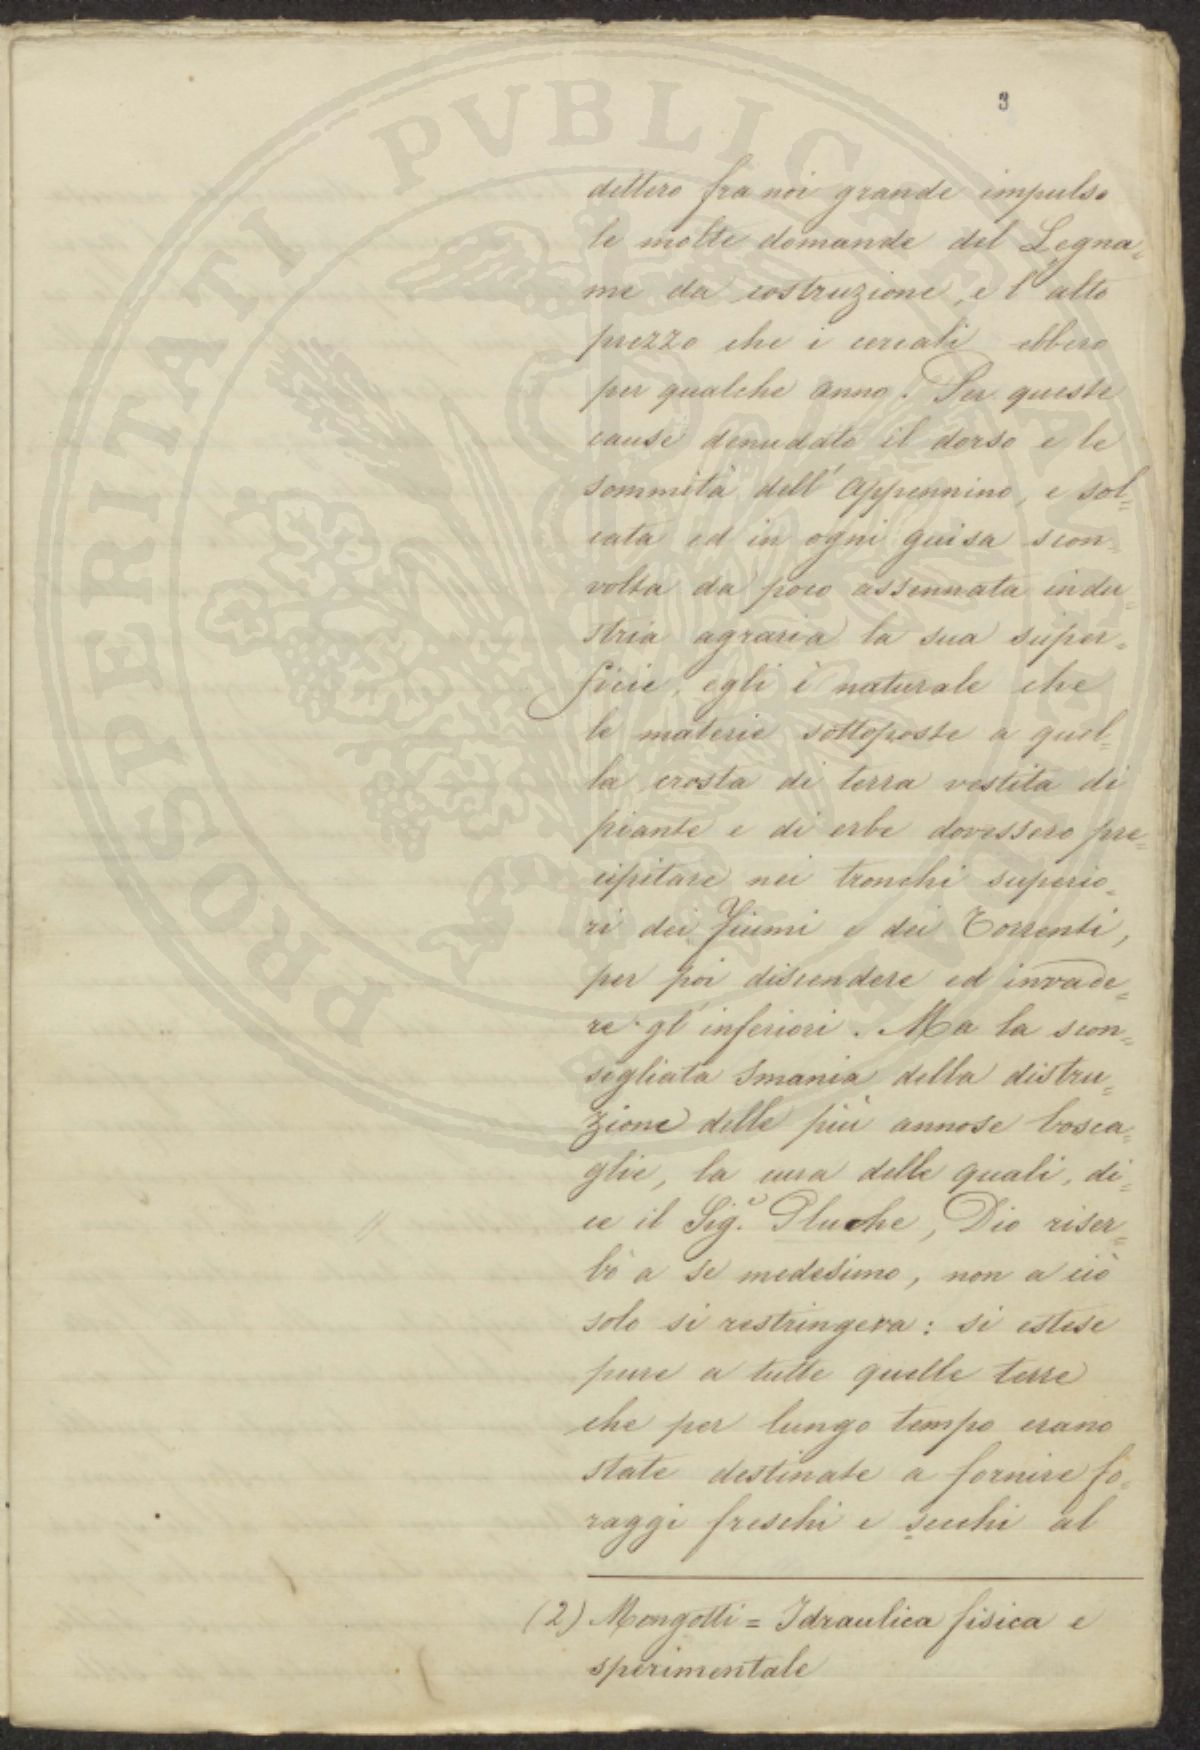 3
PROSPERITATI PVBLICAE
dettero fra noi grande impulso
le molte domande del Legna=
me da costruzione, e l'alto
prezzo che i cereali ebbero
per qualche anno. Per queste
cause denudato il dorso e le
sommità dell'Appennino, e sol=
cata ed in ogni guisa scon=
volta da poco assennata indu=
stria agraria la sua super=
ficie, egli è naturale che
le materie sottoposte a quel=
la crosta di terra vestita di
piante e di erbe dovessero pre=
cipitare nei tronchi superio=
ri dei Fiumi e dei Torrenti,
per poi discendere ed invade=
re gl'inferiori. Ma la scon=
sigliata smania della distru=
zione delle più annose bosca=
glie, la cura delle quali, di=
ce il Sig.e Pluche, Dio riser=
bò a se medesimo, non a ciò
solo si restringeva: si estese
pure a tutte quelle terre
che per lungo tempo erano
state destinate a fornire fo=
raggi freschi e secchi al
(2) Mengotti = Idraulica fisica e
sperimentale